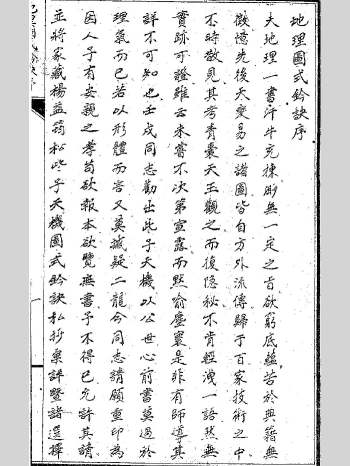 地理圖式鈐訣序
夫地理一書汗牛充棟卻無一定之旨欲窮底蘊苦於典籍無
徵憶先後天變易之諸圖皆自方外流傳歸于百家技術之中
不時散見其考青囊天玉觀之而復隱秘不肯輕洩一語然無
實跡可證雖云未嘗不次第宣露而默喻塵寰是非有師導其
詳不可知也壬戌同志勸出此子天機以公世心前書莫過於
理氣而已若以形體而言又莫撼疑二龍今同志請願重印為
因人子有安親之孝苟欲報本欲覽無書予不得已允許其請
並將家藏楊益筠松此子天機圖式鈐訣私抄稟評暨諸選擇